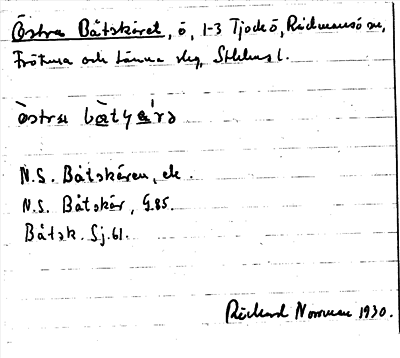 Östra Båtskäret, ö, 1-3 Tjockö, Rådmansö sn,
Frötuna och Länna skg, Sthlms l.
östra bàtʃæ̀rə
N.S. Båtskären, ek.
N.S. Båtskär, G.85.
Båtsk. Sj.61.
Rickard Norrman 1930.